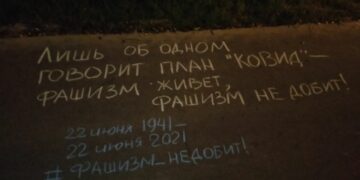 Лишь об одном
говорит план "КОВИД" —
фашизм живет,
фашизм не добит!
22 июня 1941 –
22 июня 2021
# фашизм_недобит!